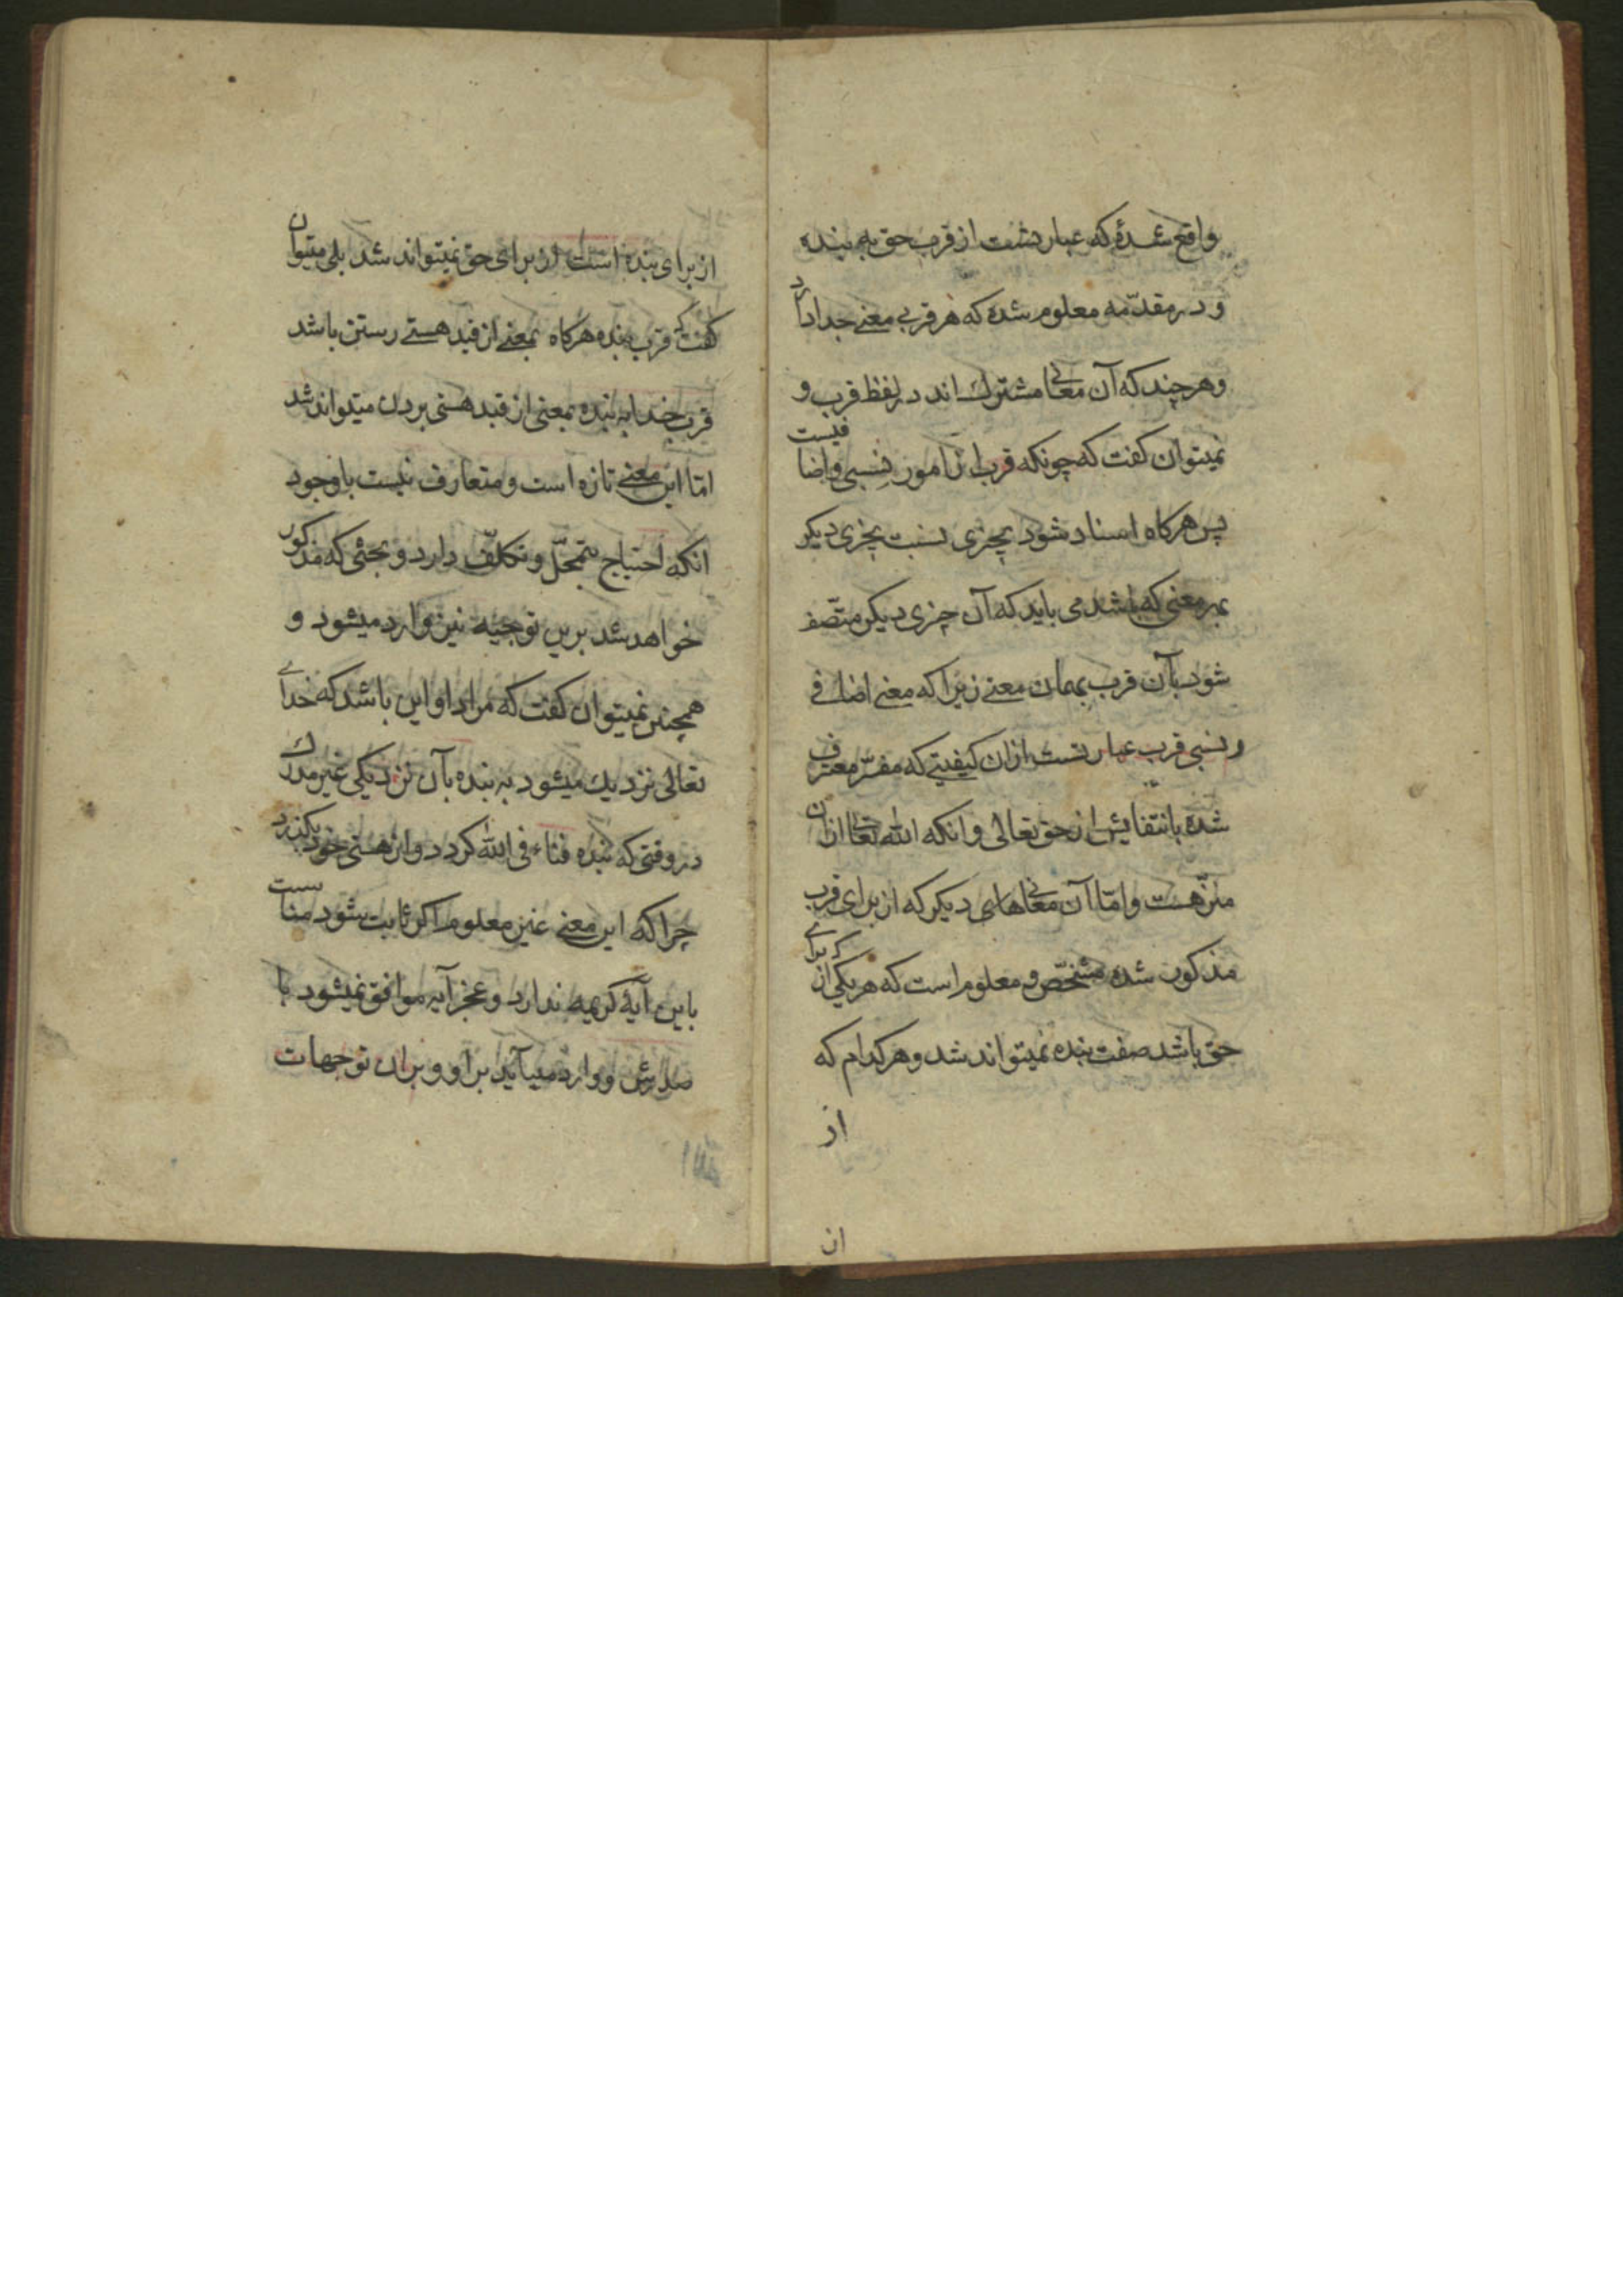 واقع شدهٔ که عبارتست از قرب حق به بنده
و در مقدّمه معلوم شده که هر قربی معنے جدا دارد
و هر چند که آن معانی مشترک اند در لفظ قرب و
نمیتوان کفت که چونکه قرب از امور نسبی و اضافیست
پس هرکاه اسناد شود بچیزی نسبت بچیزی دیکر
بهر معنی که باشد می باید که آن چیزی دیکر متّصف
شود بآن قرب بهمان معنے زیرا که معنی اضافے
و نسبی قرب عبارتست ازان کیفیتے که مفسّر معترف
شده بانتفایش از حق تعالی و انکه الله تعالی ازان
منزّهست و امّا آن معانی هاسی دیکر که از برای قرب
مذکور شده مشخّص و معلوم است که هر یکی از که برای
حق باشد صفت بنده نمیتواند شد و هر کدام که
از
ان
از برای بنده است از برای حق نمیتواند شد بلی میتوان
کفت که قرب بنده هرکاه بمعنے از قید هستے رستن باشد
قرب خدا به بنده بمعنی از قید هستی بردن میتواند شد
امّا این معنے تازه است و متعارف نیست با وجود
انکه احتیاج بتمحّل و تکلّف دارد و بحثی که مذکور
خواهد شد برین توجیه نیز وارد میشود و
همچنین نمیتوان کفت که مراد او این باشد که خدای
تعالی نزدیک میشود به بنده بآن نزدیکی غیر مدرک
در وقتی که بنده فناء فی الله کردد و از هستی خود بکذرد
چرا که این معنے غیر معلوم اکر ثابت شود مناسبت
باین آیهٔ کریمه ندارد و عجز آیه موافق نمیشود با
صدرش و وارد میآید بر او و بران توجهات